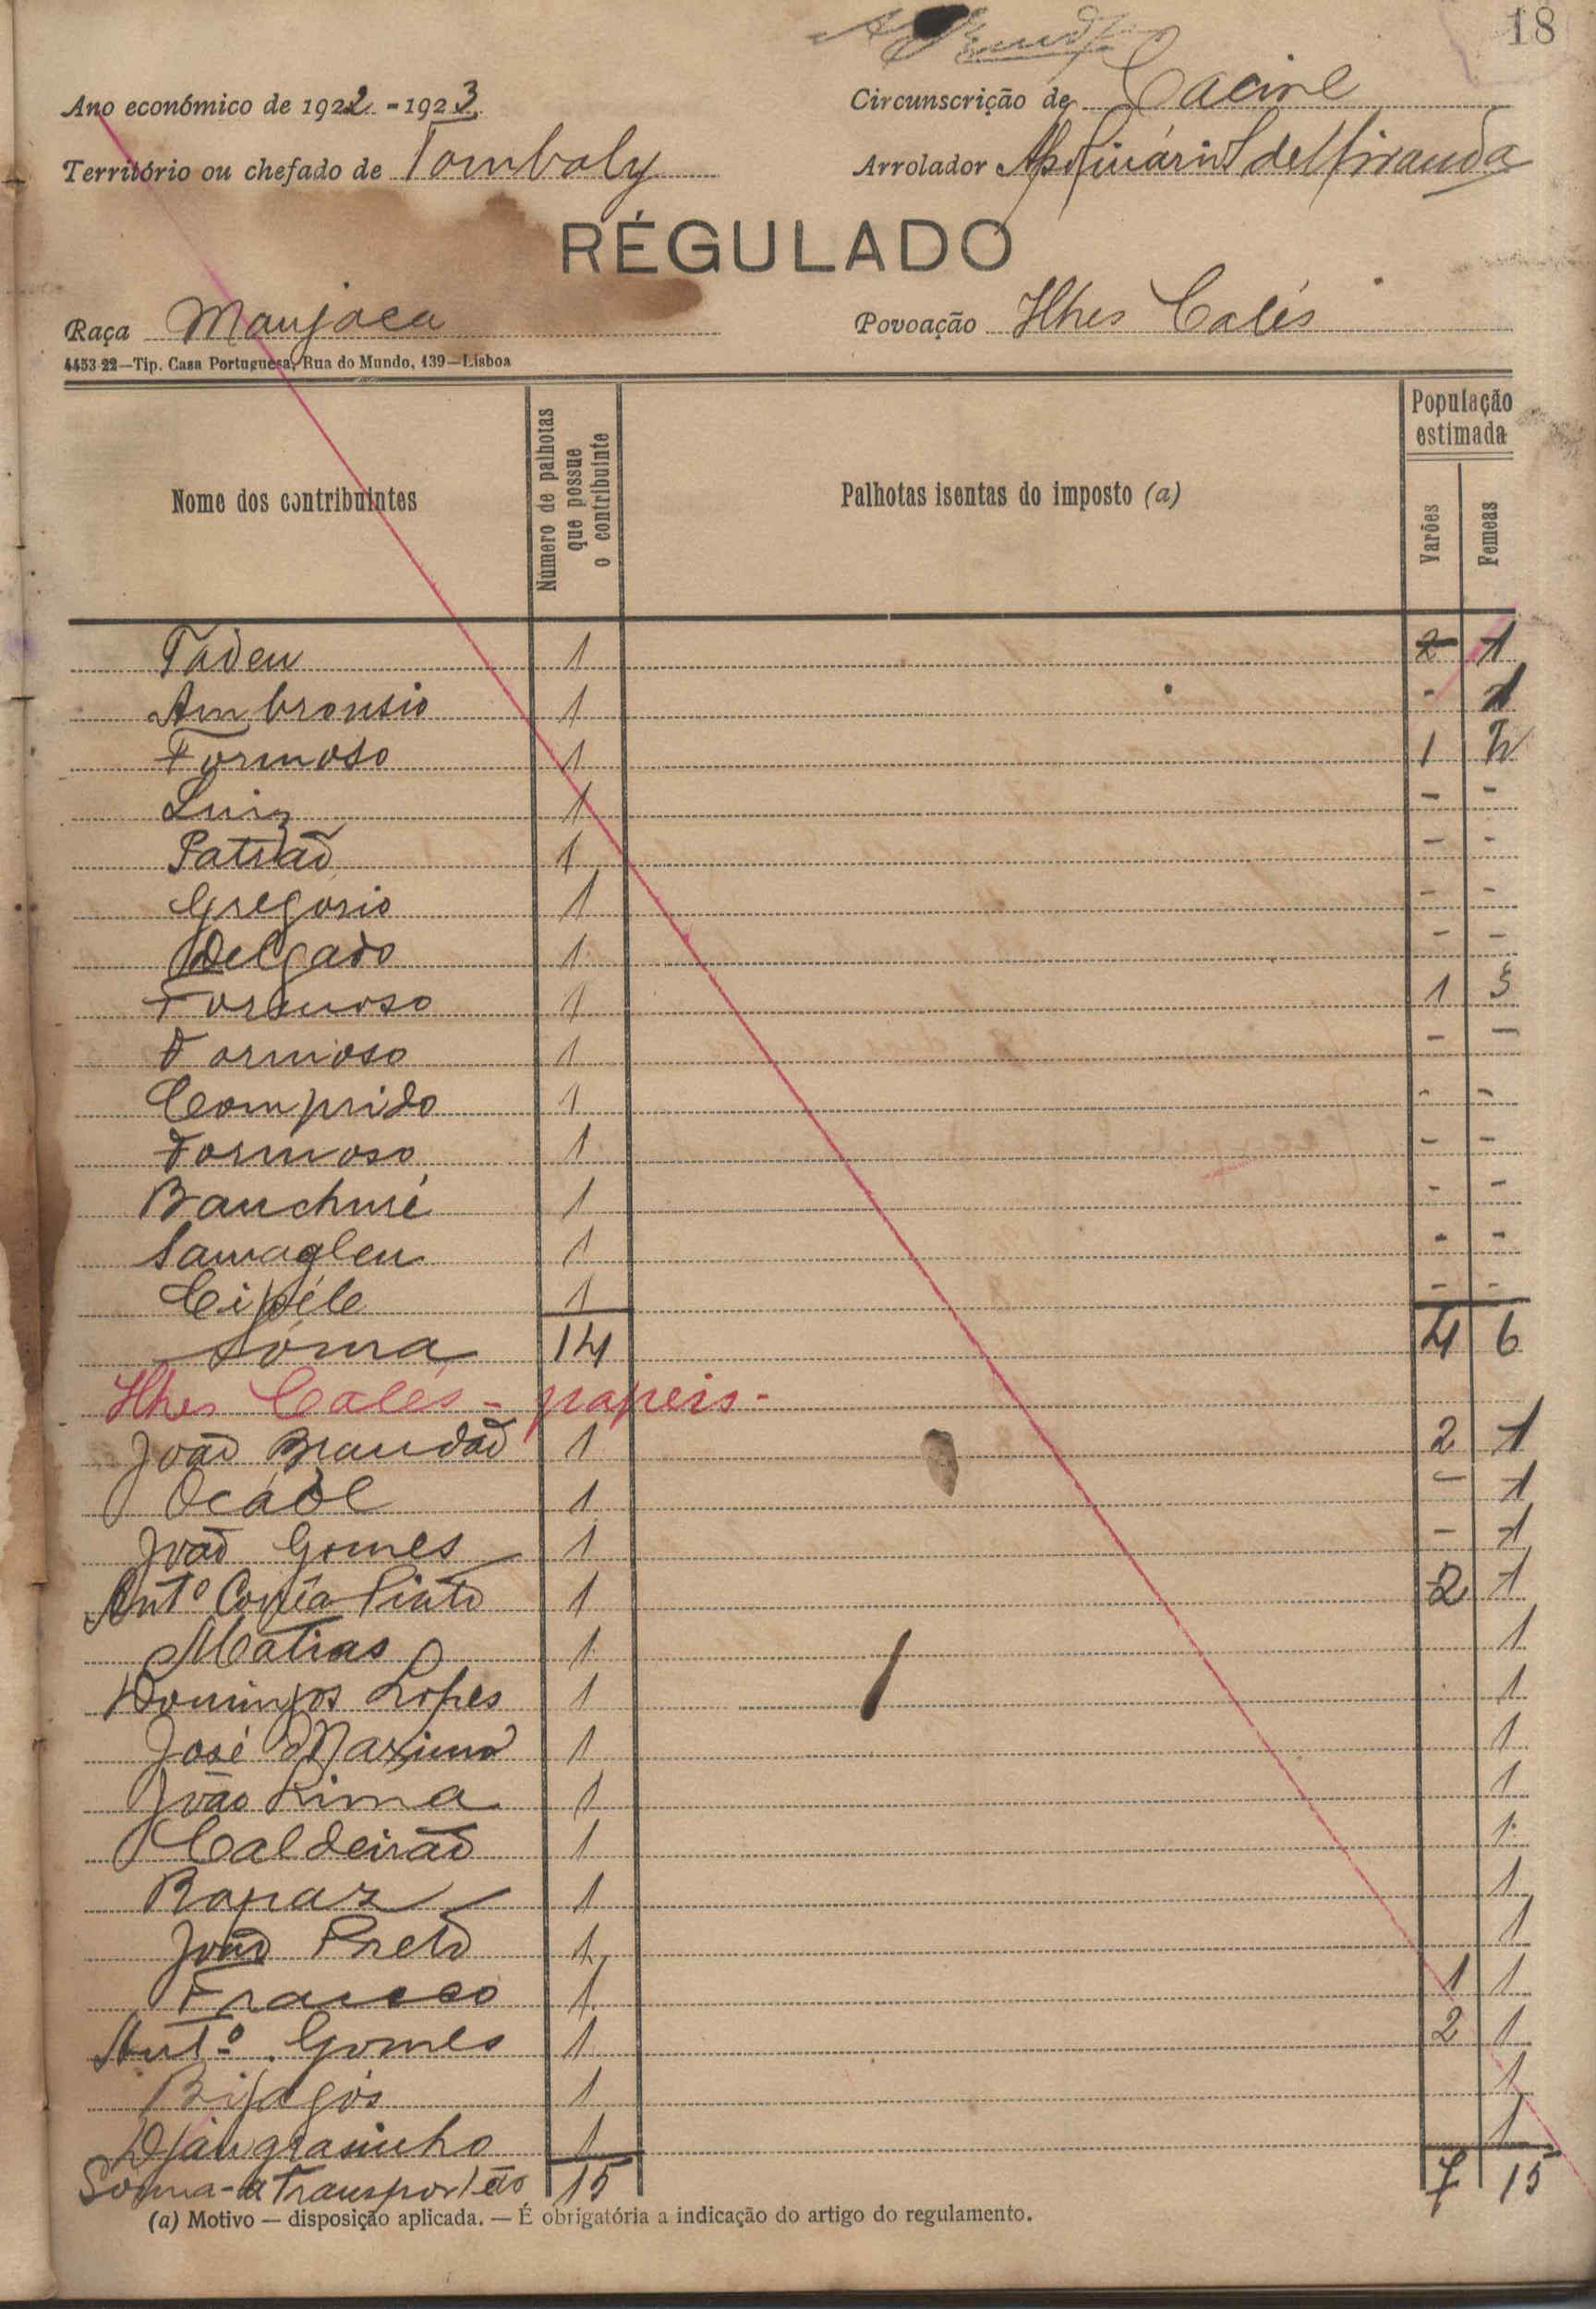 18
Ano económico de 1922-1923 Circunscrição de Cacine
Território ou chefado de Tombaly Arrolador Apolinário S de Miranda
RÉGULADO
Raça Manjaca Povoação Ilhes Calés
4453-22—Tip. Casa Portuguesa, Rua do Mundo, 139—Lisboa
Nome dos contribuintes Número de palhotas que possue o contribuinte Palhotas isentas do imposto (a) População estimada Varões Femeas
Tádeu 1 2 1
Ambronsio 1 - 1
Formoso 1 1
Luiz 1 - -
Patrão 1 - -
Gregorio 1 - -
Delgado 1 - -
Formoso 1 1 3
Formoso 1 - -
Comprido 1 - -
Formoso 1 - -
Banchuré 1 - -
Samagleu 1 - -
1 - -
Sôma 14 4 6
Ilhes Calés - papeis -
João Brandão 1 2 1
Ocáde 1 - 1
João Gomes 1 - 1
Antº Corrêa Pinto 1 2 1
Matias 1 1
Domingos Lopes 1 1
José Maximo 1 1
João Lima 1 1
Caldeirão 1 1
Rapaz 1 1
João Preto 1 1
Franceo 1 1 1
Antº Gomes 1 2 1
Bijagós 1 1
Djangrasinho 1 1
Soma - a Transportão 15 7 15
(a) Motivo — disposição aplicada. — É obrigatória a indicação do artigo do regulamento.